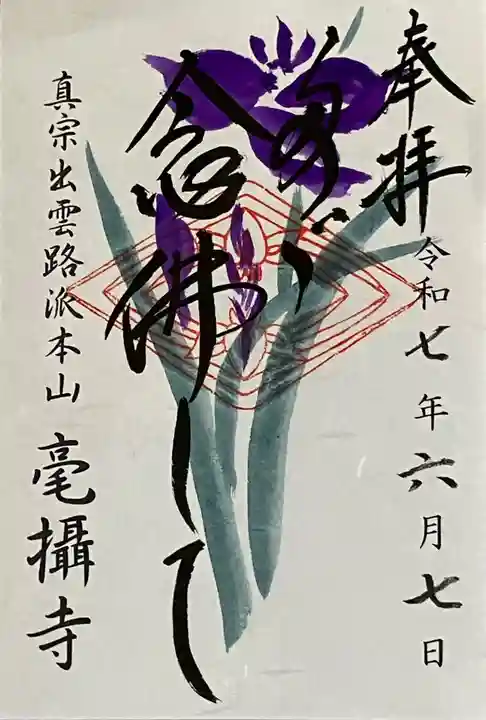 奉拝
令和七年六月七日
念佛して
真宗出雲路派本山
毫攝寺